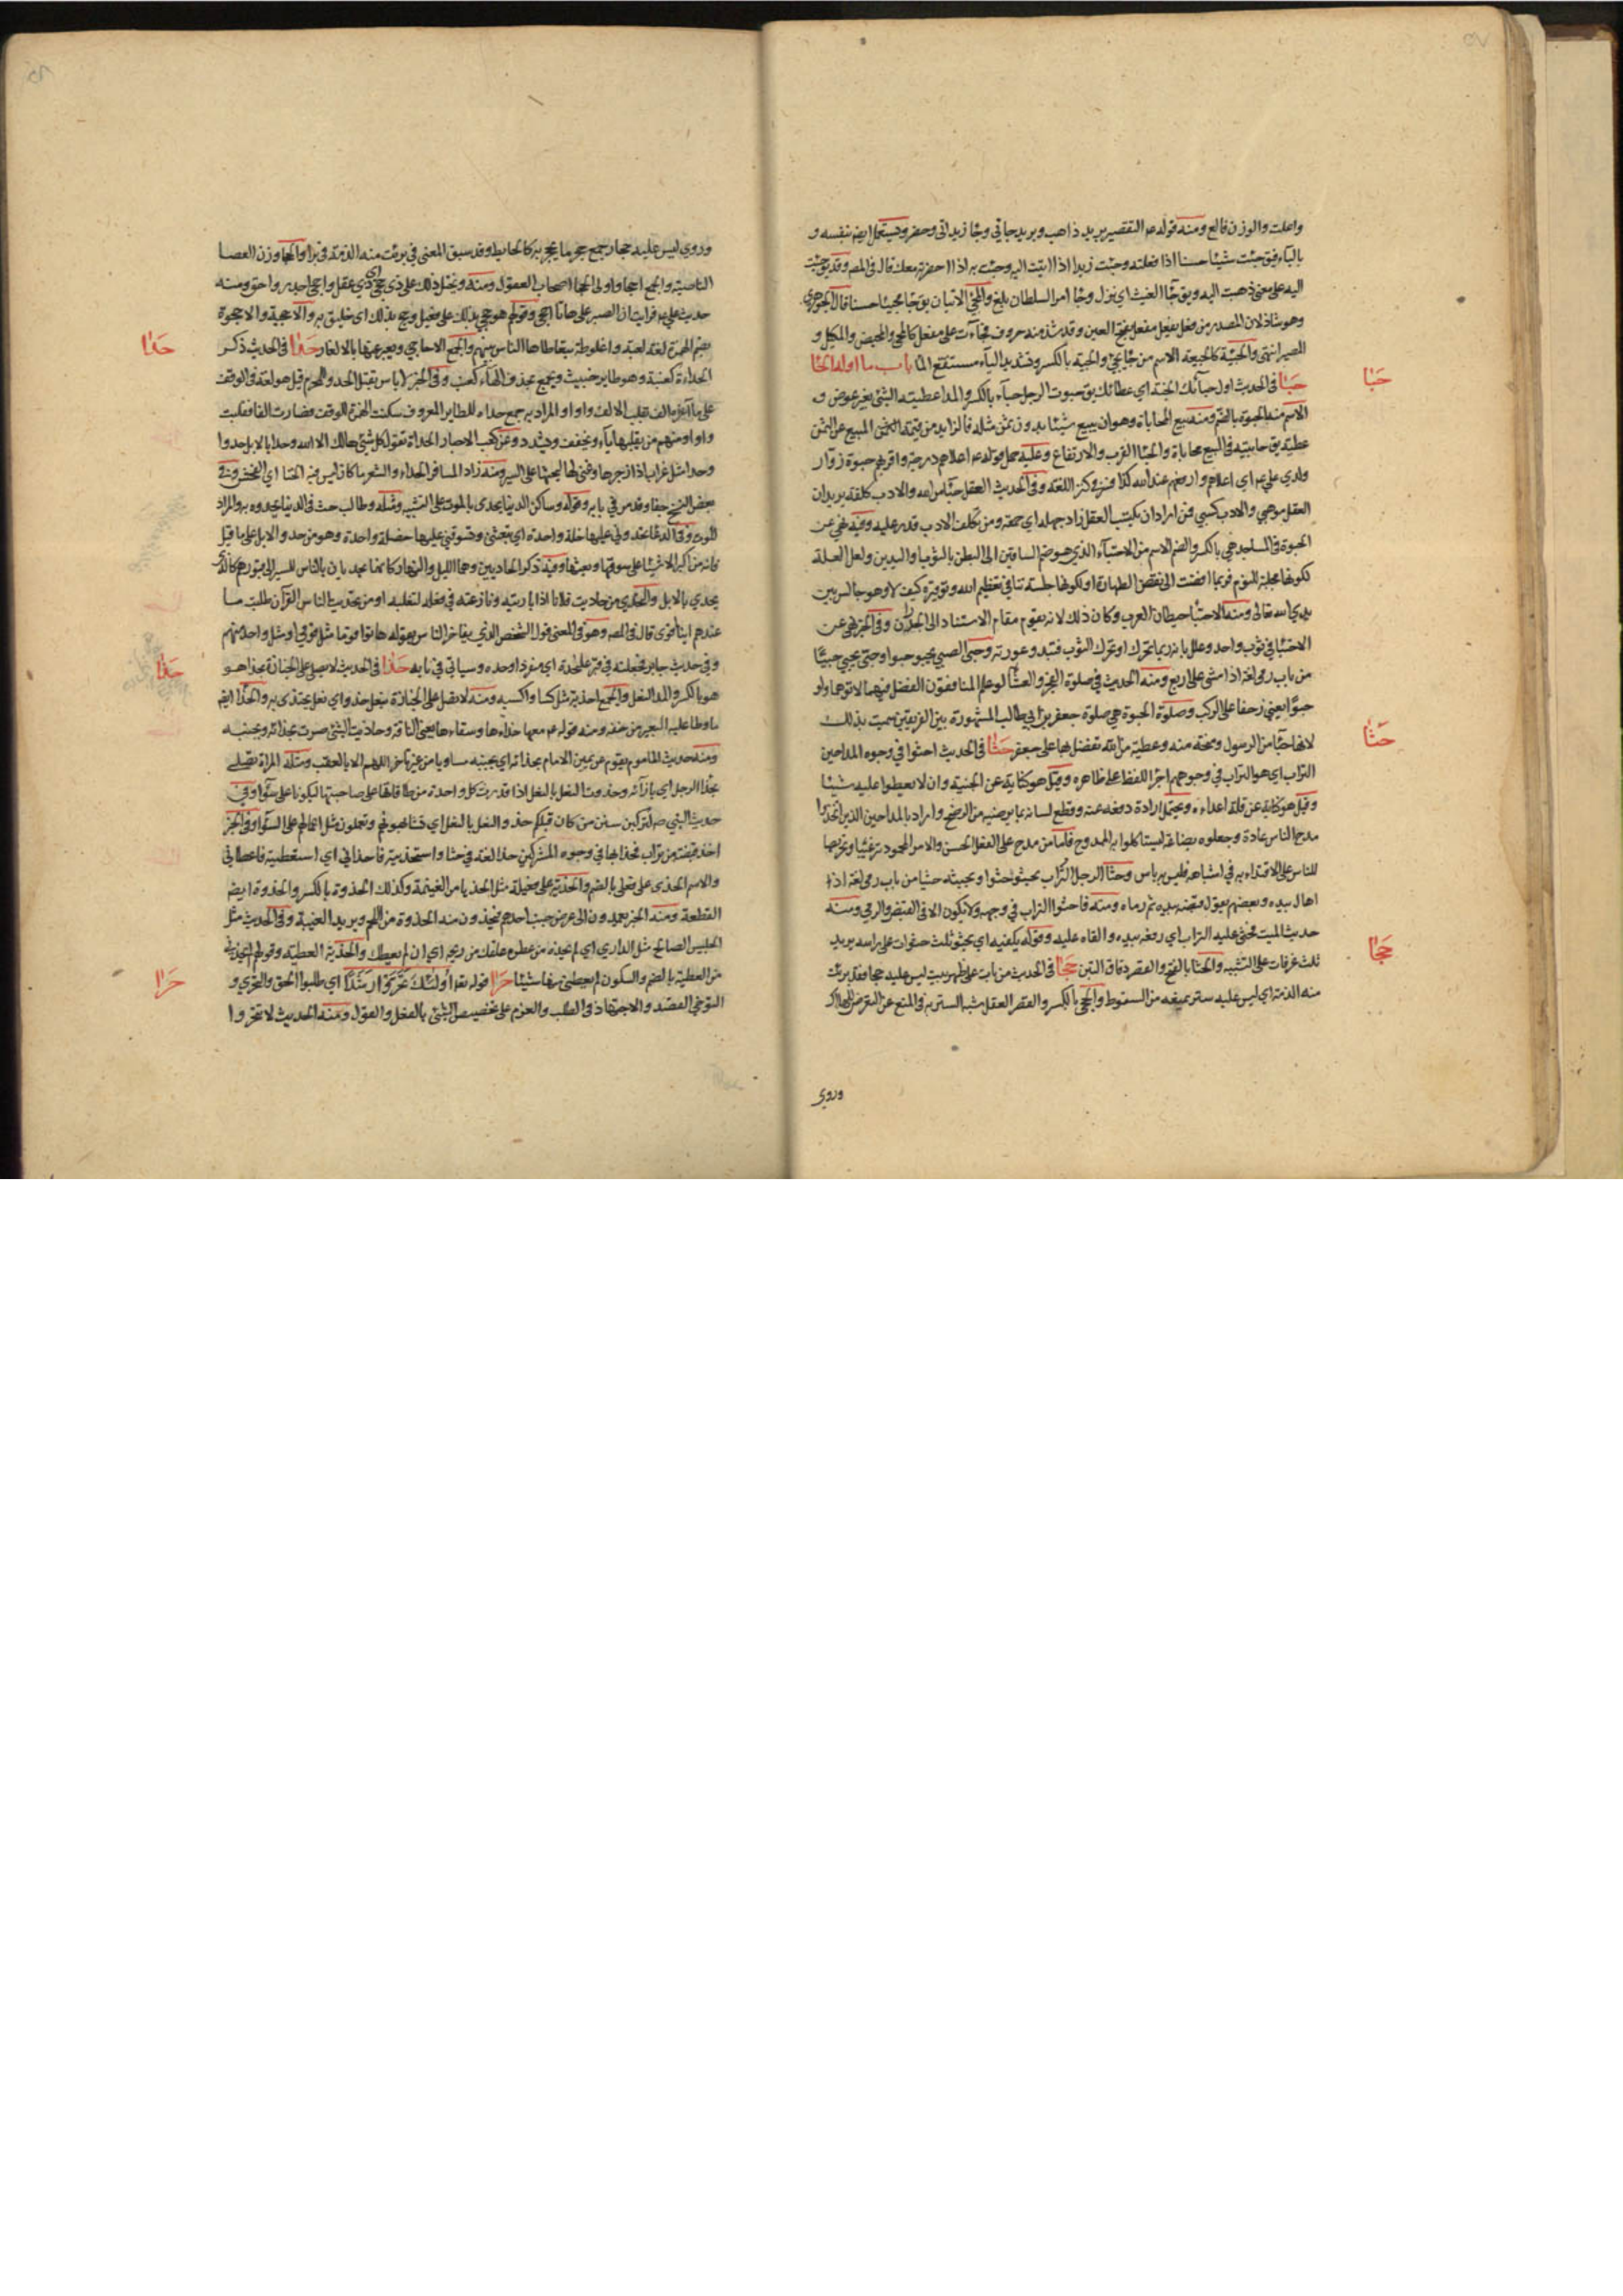 واعلت والوزن فالع ومنه قوله عم التقصير بريد ذاهب وبريد جائي وجاء زيد اتى وحضر ويستعمل ايضا بنفسه و
بالباء فيق جئت شيئا حسنا اذا فعلته وجئت زيدا اذا اتيت اليه وجئت به اذا احضرته معك قال في المص وقد يق جئت
اليه على معنى ذهبت اليه ويق جاء الغيث اي نزل وجاء امر السلطان بلغ والمجئ الاتيان يق جاء مجيئا حسنا قال الجوهري
وهو شاذ لان المصدر من فعل يفعل مفعل بفتح العين وقد شذ منه حروف فجاءت على مفعل كالمجئ والمحيض والمكيل و
المصير انتهى والجيئة كالجيعة الاسم من جاء يجئ والجية بالكسر وتشديد الياء مستنقع الماء باب ما اوله الحاء
حبا
حبا في الحديث اول حبائك الجنة اي عطائك يق حبوت الرجل حباء بالكسر والمد اعطيته الشئ بغير عوض و
الاسم منه الحبوة بالضم ومنه بيع المحاباة وهو ان يبيع شيئا بدون ثمن مثله فالزايد من قيمة المبيع عن الثمن
عطية يق حابيته في البيع محاباة والحبا القرب والارتفاع وعليه حمل قوله عم اعلاهم درجة واقربهم حبوة زوار
ولدي علي عم اي اعلاهم وارفعهم عند الله كذا فسر في كنز اللغة وفي الحديث العقل حباء من الله والادب كلفة يريد ان
العقل موهبي والادب كسبي فمن اراد ان يكتسب العقل زاد جهله اي حمقه ومن تكلف الادب قدر عليه وفيه نهي عن
الحبوة في المساجد هي بالكسر والضم الاسم من الاحتباء الذي هو ضم الساقين الى البطن بالثوب او اليدين ولعل العلة
لكونها مجلبة للنوم فربما افضت الى نقض الطهارة او لكونها جلسة تنافي تعظيم الله وتوقيره كيف لا وهو جالس بين
يدي الله تعالى ومنه الاحتباء حيطان العرب وكان ذلك لانه يقوم مقام الاستناد الى الجدران وفي الخبر نهي عن
الاحتباء في ثوب واحد وعلل بانه ربما تحرك او تحرك الثوب فتبدو عورته وحبى الصبي يحبو حبوا وحبى يحبي حبيا
من باب رمى لغة اذا مشى على اربع ومنه الحديث في صلوة الفجر والعشاء لو علم المنافقون الفضل فيهما لاتوهما ولو
حبوا يعني زحفا على الركب وصلوة الحبوة هي صلوة جعفر بن ابي طالب المشهورة بين الفريقين سميت بذلك
حثا
لانها حباء من الرسول ومنحة منه وعطية من الله تفضل بها على جعفر حثا في الحديث احثوا في وجوه المداحين
التراب اي هو التراب في وجوههم اجراء اللفظ على ظاهره وقيل هو كناية عن الخيبة وان لا يعطوا عليه شيئا
وقيل هو كناية عن قلة اعداءه ويحتمل ارادة دفعه عنه وقطع لسانه بما يرضيه من الرضخ واراد بالمداحين الذين اتخذوا
مدح الناس عادة وجعلوه بضاعة ليستاكلوا به الممدوح فاما من مدح على الفعل الحسن والامر المحمود ترغيبا وتحريضا
للناس على الاقتداء به في اشباهه فليس به باس وحثا الرجل التراب يحثوه حثوا ويحثيه حثيا من باب رمى لغة اذا
اهال بيده وبعضهم يقول قبضه بيده ثم رماه ومنه فاحثوا التراب في وجهه ولا يكون الا في القبض والرمي ومنه
حديث الميت فحثى عليه التراب اي رفعه بيده والقاه عليه وقوله يكفيه اي يحثو ثلث حثوات على راسه يريد
حجا
ثلث غرفات على التشبيه والحثا بالفتح والقصر دقاق التبن حجا في الحديث من بات على ظهر بيت ليس عليه حجا فقد برئت
منه الذمة اي ليس عليه ستر يمنعه من السقوط والحجى بالكسر والقصر العقل شبه الستر به في المنع عن التعرض للهلاك
وروي
وروي ليس عليه حجار جمع حجر ما يحجر به كالحايط وقد سبق المعنى في برئت منه الذمة في برا والحجا وزن العصا
الناحية والجمع احجا واولى الحجا اصحاب العقول ومنه ويختل ذلك على ذي حجى اي ذي عقل واحجى اجدر واحق ومنه
حديث علي عم فرايت ان الصبر على هاتا احجى وقولهم هو حجي بذلك على فعيل وحج بذلك اي خليق به والاحجية والاحجوة
حدا
بضم الهمزة لغة لعبة واغلوطة يتعاطاها الناس بينهم والجمع الاحاجي ويعبر عنها بالالغاز حدا في الحديث ذكر
الحداة كعنبة وهو طاير خبيث ويجمع بحذف الهاء كعنب وفي الخبر لا باس بقتل الحدو للمحرم قيل هو لغة في الوقف
على ما آخره الف تقلب الالف واوا او المراد به جمع حداء للطاير المعروف سكنت الهمزة للوقف فصارت الفا فقلبت
واوا ومنهم من يقلبها ياء ويخفف ويشدد وعن كعب الاحبار الحداة تقول كل شئ هالك الا الله وحدا بالابل حدوا
وحداء مثل غراب اذا زجرها وغنى لها ليحثها على السير ومنه زاد المسافر الحداء والشعر ما كان ليس فيه الخنا اي الفحش وفي
بعض النسخ جفا وقد مر في بابه وقوله وساكن الدنيا يحدى بالموت على التشبيه ومثله وطالب حث في الدنيا يحدوه به والمراد
الموت وفي الدعاء تحدوني عليها خلة واحدة اي تبعثني وتسوقني عليها خصلة واحدة وهو من حدو الابل على ما قيل
فانه من اكبر الاشياء على سوقها وبعثها وفيه ذكر الحاديين وهما الليل والنهار كانهما يحديان بالناس للسير الى قبورهم كالذي
يحدي بالابل والتحدي من حاديت فلانا اذا باريته ونازعته في فعله لتغلبه او من تحديت الناس القرآن طلبت ما
عندهم ايهم اقوى قال في المص وهو في المعنى قول الشخص الذي يفاخر الناس بقوله هاتوا قوما مثل قومي او مثل واحد منهم
حذا
وفي حديث جابر فجعلته في قبر على حدة اي منفردا وحده وسياتي في بابه حذا في الحديث لا يصلى على الجنازة بحذاء هو
هو بالكسر والمد النعل والجمع احذية مثل كساء واكسية ومنه لا تصل على الجنازة بنعل حذو اي نعل يحتذى به والحذاء ايضا
ما وطا عليه البعير من خفه ومنه قوله عم معها حذاءها وسقاءها يعني الناقة وحاذيت الشئ صرت بحذائه وبجنبه
ومنه حديث الماموم يقوم عن يمين الامام بحذائه اي بجنبه مساويا من غير تاخر اللهم الا بالعقب ومثله المراة تصلي
بحذاء الرجل اي بازائه وحذوت النعل بالنعل اذا قدرت كل واحدة من طاقاتها على صاحبتها ليكونا على سواء وفي
حديث النبي ص لتركبن سنن من كان قبلكم حذو النعل بالنعل اي تشابهونهم وتعملون مثل اعمالهم على السواء وفي الخبر
اخذ قبضة من تراب فحذا بها في وجوه المشركين حذا لغة في حثا واستحذيته فاحذاني اي استعطيته فاعطاني
والاسم الحذى على فعلى بالضم والحذية على فعيلة مثل الحذيا من الغنيمة وكذلك الحذوة بالكسر والحذوة ايضا
القطعة ومنه الخبر يعمدون الى عرض جنب احدهم فيحذون منه الحذوة من اللحم ويريد الغيبة وفي الحديث مثل
الجليس الصالح مثل الداري اي ان لم يحذه من عطره علقك من ريحه اي ان لم يعطك والحذية العطية وقولهم
حرا
من العطية بالضم والسكون لم يعطني منها شيئا حرا قوله تعالى اولئك تحروا رشدا اي طلبوا الحق والتحري و
التوخي القصد والاجتهاد في الطلب والعزم على تخصيص الشئ بالفعل والقول ومنه الحديث لا تتحروا